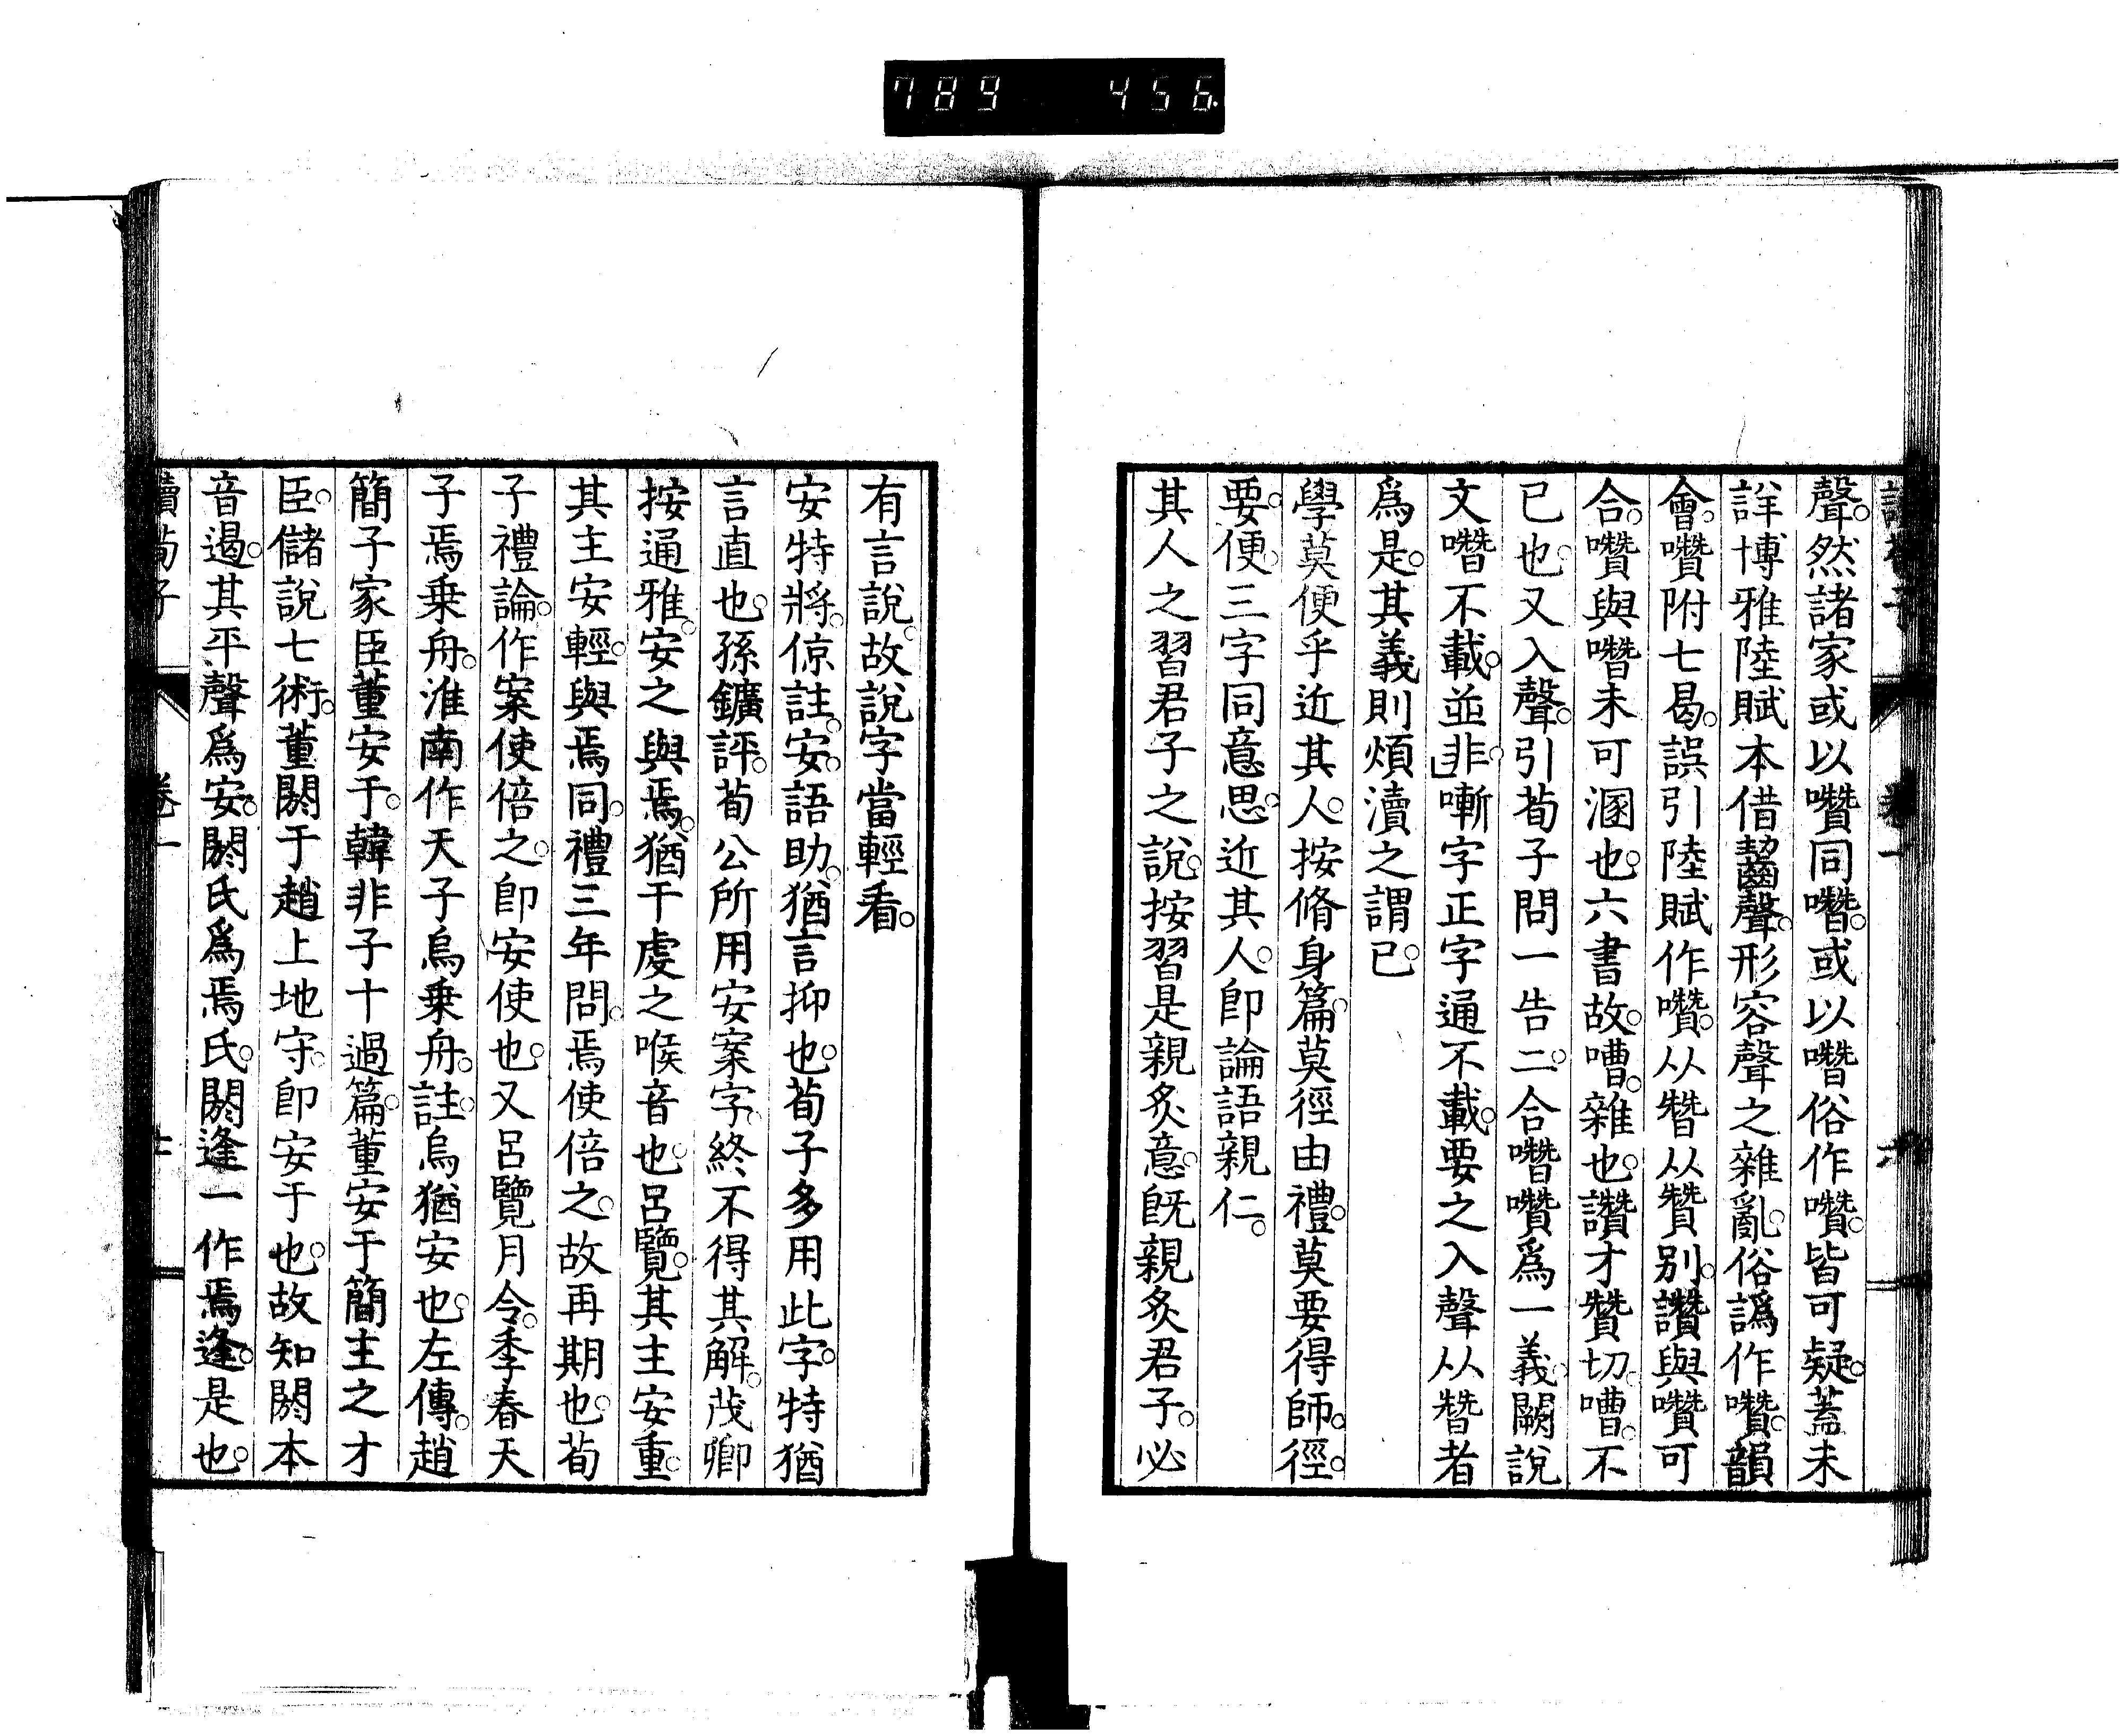 789 456
讀荀子 卷一 六
聲。然諸家或以囋同噆。或以噆俗作囋。皆可疑。蓋未
詳博雅陸賦本借齧聲。形容聲之雜亂。俗譌作囋。韻
會。囋附七曷。誤引陸賦作囋。从朁从贊別。讚與囋可
合。囋與噆未可溷也。六書故。嘈。雜也。讚才贊切。嘈。不
已也。又入聲。引荀子問一告二。合噆囋爲一義。闕說
文噆不載。並非。嘶字正字通不載。要之入聲从朁者
爲是。其義則煩瀆之謂已。
學莫便乎近其人。按脩身篇。莫徑由禮。莫要得師。徑。
要。便。三字同意思。近其人。卽論語親仁。
其人之習君子之說。按習是親炙意。旣親炙君子。必
有言說。故說字當輕看。
安特將。倞註。安。語助。猶言抑也。荀子多用此字。特猶
言直也。孫鑛評。荀公所用安案字。終不得其解。茂卿
按通雅。安之與焉。猶干虔之喉音也。呂覽。其主安重。
其主安輕。與焉同。禮三年問。焉使倍之。故再期也。荀
子禮論。作案使倍之。卽安使也。又呂覽月令。季春天
子焉乗舟。淮南作天子烏乗舟。註。烏猶安也。左傳。趙
簡子家臣董安于。韓非子十過篇。董安于簡主之才
臣。儲說七術。董閼于趙上地守。卽安于也。故知閼本
音遏。其平聲爲安。閼氏爲焉氏。閼逢一作焉逢。是也。
讀荀子 卷一 七